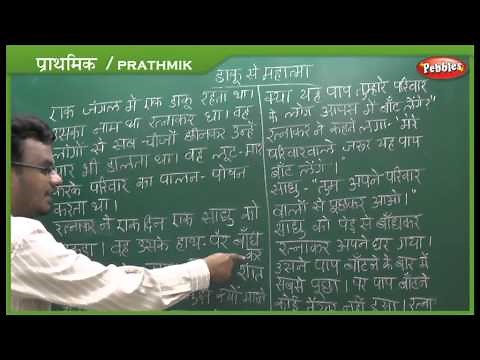 प्राथमिक / PRATHMIK
Pebbles
डाकू से महात्मा
एक जंगल में एक डाकू रहता था।
उसका नाम था रत्नाकर था। वह
लोगों से सब चीजों छीनकर उन्हें
मार भी डालता था। वह लूट-मार
करके परिवार का पालन-पोषन
करता था।
रत्नाकर ने एक दिन एक साधु को
वह उसके हाथ-पैर बाँध
कर
क्या यह पाप तुम्हारे परिवार
के लोग आपस में बाँट लेंगे?"
रत्नाकर ने कहने लगा- "मेरे
परिवारवाले जरूर यह पाप
बाँट लेंगे।"
साधु- "तुम अपने परिवार
वालों से पूछकर आओ।"
साधु को पेड़ से बाँधकर
रत्नाकर अपने घर गया।
उसने पाप बाँटने के बारे में
सबसे पूछा। पर पाप बाँटने
कोई तैयार नहीं हुआ। रत्ना